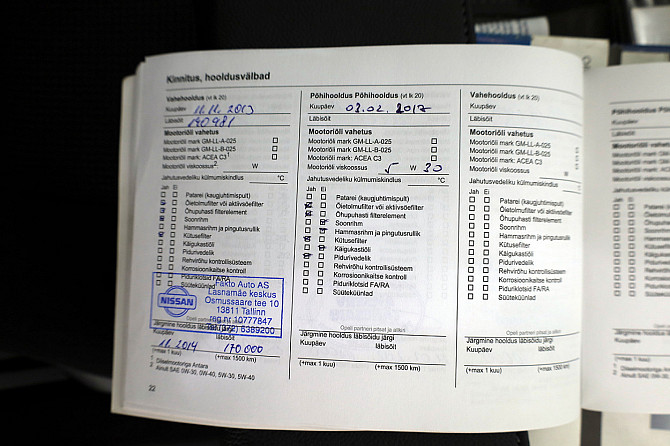 Kinnitus, hooldusvälbad
Vahehooldus (vt lk 20)
Kuupäev 11.12.2013
Läbisõit 140981
Mootoriõli vahetus
Mootoriõli mark GM-LL-A-025
Mootoriõli mark GM-LL-B-025
Mootoriõli mark: ACEA C3 1
Mootoriõli viskoossus2: W
Jahutusvedeliku külmumiskindlus °C
Jah Ei
Patarei (kaugjuhtimispult)
Õietolmufilter või aktiivsöefilter
Õhupuhasti filterelement
Soonrihm
Hammasrihm ja pingutusrullik
Kütusefilter
Käigukastiõli
Pidurivedelik
Rehvirõhu kontrollisüsteem
Korrosioonikaitse kontroll
Piduriklotsid FA/RA
Süüteküünlad
NISSAN
Fakto Auto AS
Lasnamäe keskus
Osmussaare tee 10
13811 Tallinn
reg nr 10777847
Tel (372) 6389200
Järgmine hooldus läbisõidu järgi
Kuupäev läbisõit
11.2014 170 000
(+max 1 kuu) (+max 1500 km)
1 Diiselmootoriga Antara
2 Ainult SAE 0W-30, 0W-40, 5W-30, 5W-40
22
Põhihooldus Põhihooldus (vt lk 20)
Kuupäev 02.02.2017
Läbisõit
Mootoriõli vahetus
Mootoriõli mark GM-LL-A-025
Mootoriõli mark GM-LL-B-025
Mootoriõli mark: ACEA C3
Mootoriõli viskoossus 5 W 30
Jahutusvedeliku külmumiskindlus °C
Jah Ei
Patarei (kaugjuhtimispult)
Õietolmufilter või aktiivsöefilter
Õhupuhasti filterelement
Soonrihm
Hammasrihm ja pingutusrullik
Kütusefilter
Käigukastiõli
Pidurivedelik
Rehvirõhu kontrollisüsteem
Korrosioonikaitse kontroll
Piduriklotsid FA/RA
Süüteküünlad
Opeli partneri pitsat ja allkiri
Järgmine hooldus läbisõidu järgi
Kuupäev läbisõit
(+max 1 kuu) (+max 1500 km)
Vahehooldus (vt lk 20)
Kuupäev
Läbisõit
Mootoriõli vahetus
Mootoriõli mark GM-LL-A-025
Mootoriõli mark GM-LL-B-025
Mootoriõli mark: ACEA C3
Mootoriõli viskoossus W
Jahutusvedeliku külmumiskindlus °C
Jah Ei
Patarei (kaugjuhtimispult)
Õietolmufilter või aktiivsöefilter
Õhupuhasti filterelement
Soonrihm
Hammasrihm ja pingutusrullik
Kütusefilter
Käigukastiõli
Pidurivedelik
Rehvirõhu kontrollisüsteem
Korrosioonikaitse kontroll
Piduriklotsid FA/RA
Süüteküünlad
Opeli partneri pitsat ja allkiri
Järgmine hooldus läbisõidu järgi
Kuupäev läbisõit
(+max 1 kuu) (+max 1500 km)
Põhihooldus
Kuupäev
Läbisõit
Mootoriõli
Mootoriõli mark
Mootoriõli mark
Mootoriõli mark
Mootoriõli
Jahutusvedeliku
Jah Ei